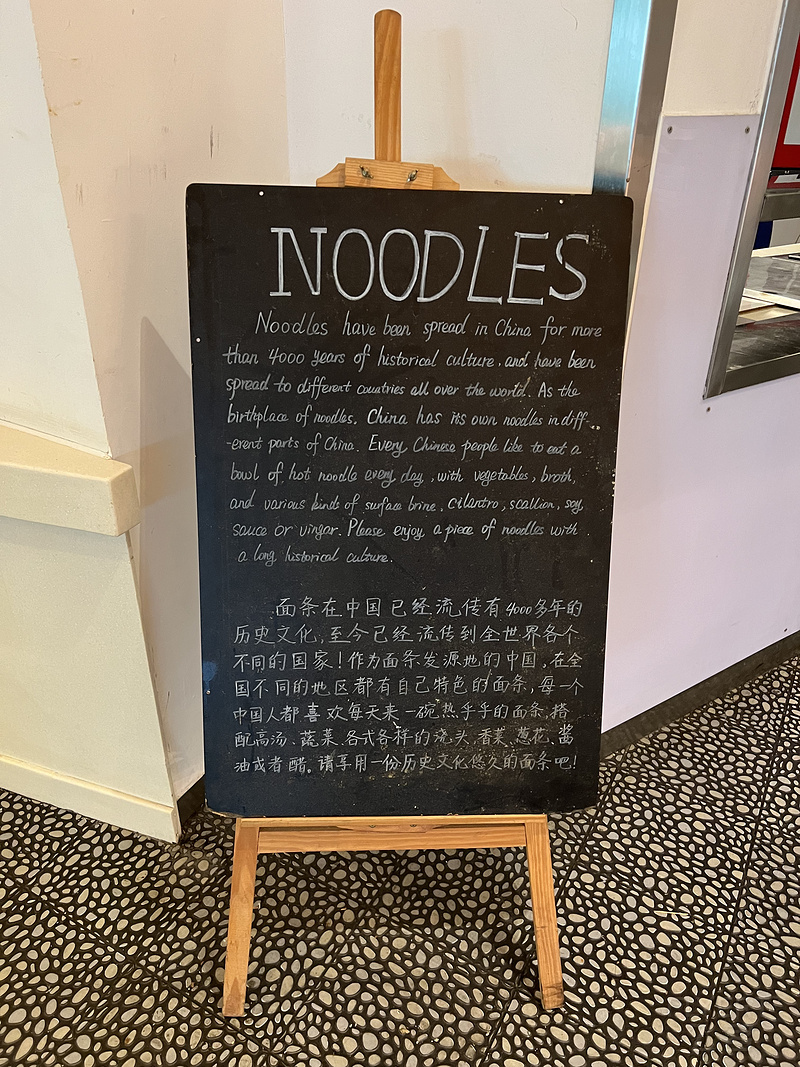 NOODLES
Noodles have been spread in China for more
than 4000 years of historical culture, and have been
spread to different countries all over the world. As the
birthplace of noodles, China has its own noodles in diff-
-erent parts of China. Every Chinese people like to eat a
bowl of hot noodle every day, with vegetables, broth,
and various kinds of surface brine, cilantro, scallion, soy
sauce or vingar. Please enjoy a piece of noodles with
a long historical culture.
面条在中国已经流传有4000多年的
历史文化,至今已经流传到全世界各个
不同的国家!作为面条发源地的中国,在全
国不同的地区都有自己特色的面条,每一个
中国人都喜欢每天来一碗热乎乎的面条,搭
配高汤、蔬菜、各式各样的浇头、香菜、葱花、酱
油或者醋。请享用一份历史文化悠久的面条吧!